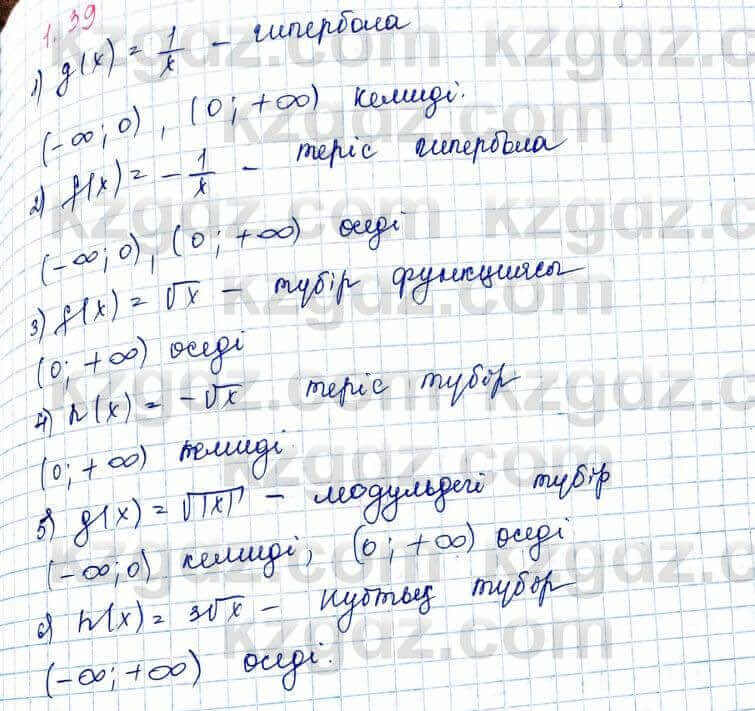 1.39
1) g(x) = 1/x - гипербола
(-∞; 0), (0; +∞) кемиді.
2) f(x) = - 1/x - теріс гипербола
(-∞; 0), (0; +∞) өседі
3) f(x) = √x - түбір функциясы
(0; +∞) өседі
4) h(x) = -√x теріс түбір
(0; +∞) кемиді.
5) g(x) = √|x| - модульдегі түбір
(-∞; 0) кемиді, (0; +∞) өседі
6) h(x) = 3√x - түбір
(-∞; +∞) өседі.
kzgdz.com